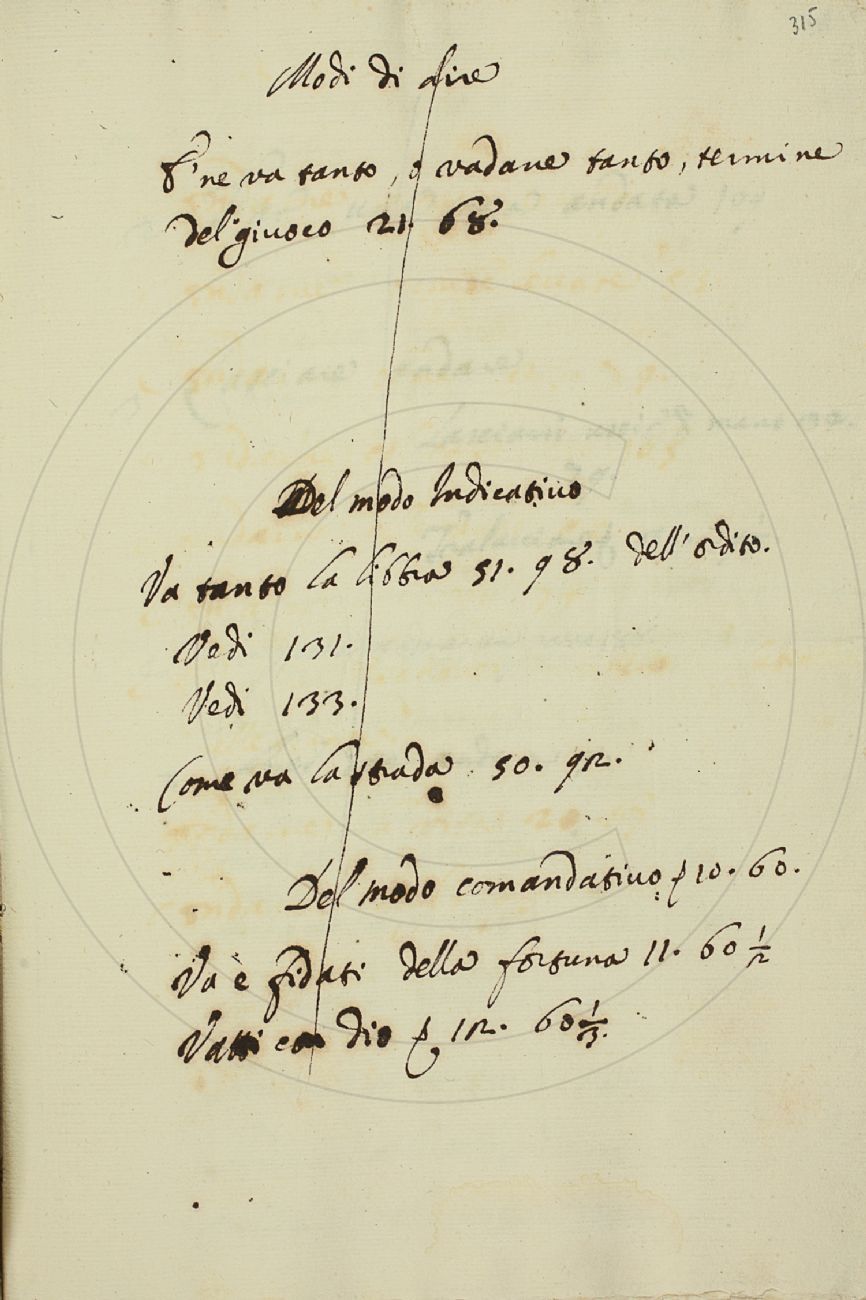 315
Modi di dire
E' ne va tanto, o vadane tanto, termine
del giuoco 21. 68.
Del modo Indicativo
Va tanto la libbra 51. 98. dell' ordito.
Vedi 131.
Vedi 133.
Come va la strada 50. 92.
Del modo comandativo p 10. 60.
Va è fidati della fortuna 11. 60 1/2
Vatti con dio p 12. 60 1/3.